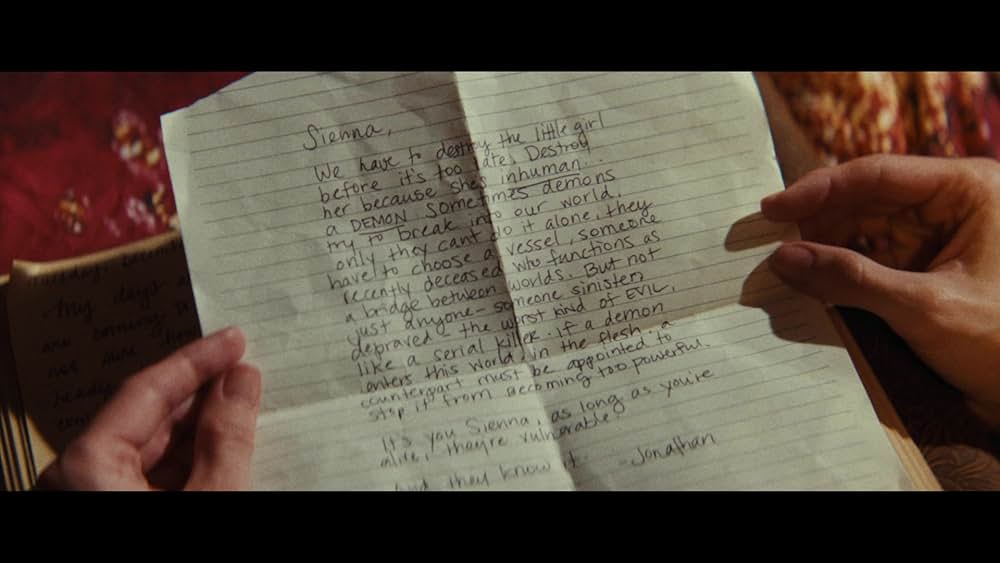 Sienna,
We have to destroy the little girl
before it's too late. Destroy
her because she's inhuman..
a DEMON Sometimes demons
try to break into our world.
only they can't do it alone, they
have to choose a vessel, someone
recently deceased who functions as
a bridge between worlds. But not
just anyone - someone sinister,
depraved - the worst kind of EVIL,
like a serial killer. if a demon
enters this world in the flesh. a
counterpart must be appointed to
stop it from becoming too powerful.
It's you Sienna, as long as you're
alive, they're vulnerable.
And they know it. -Jonathan
My days